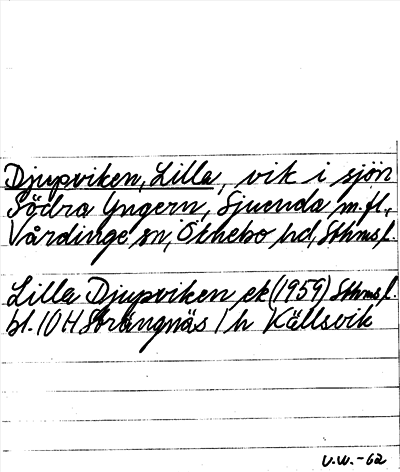 Djupviken, Lilla, vik i sjön
Södra Yngern, Sjuenda m.fl.,
Vårdinge sn, Öknebo hd, Sthms l.
Lilla Djupviken ek (1959) Sthms l.
bl. 10 H Strängnäs 1 h Källsvik
V.W.-62